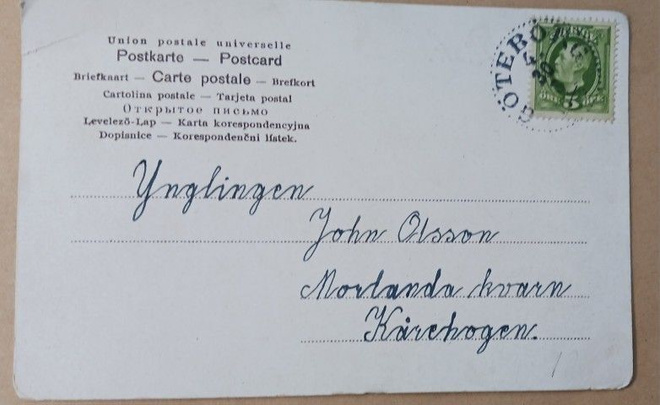 Union postale universelle
Postkarte — Postcard
Briefkaart — Carte postale — Brefkort
Cartolina postale — Tarjeta postal
Открытое письмо
Levelező-Lap — Karta korespondencyjna
Dopisnice — Korespondenční lístek.
GÖTEBORG
Ynglingen
John Olsson
Morlanda kvarn
Kårehogen.